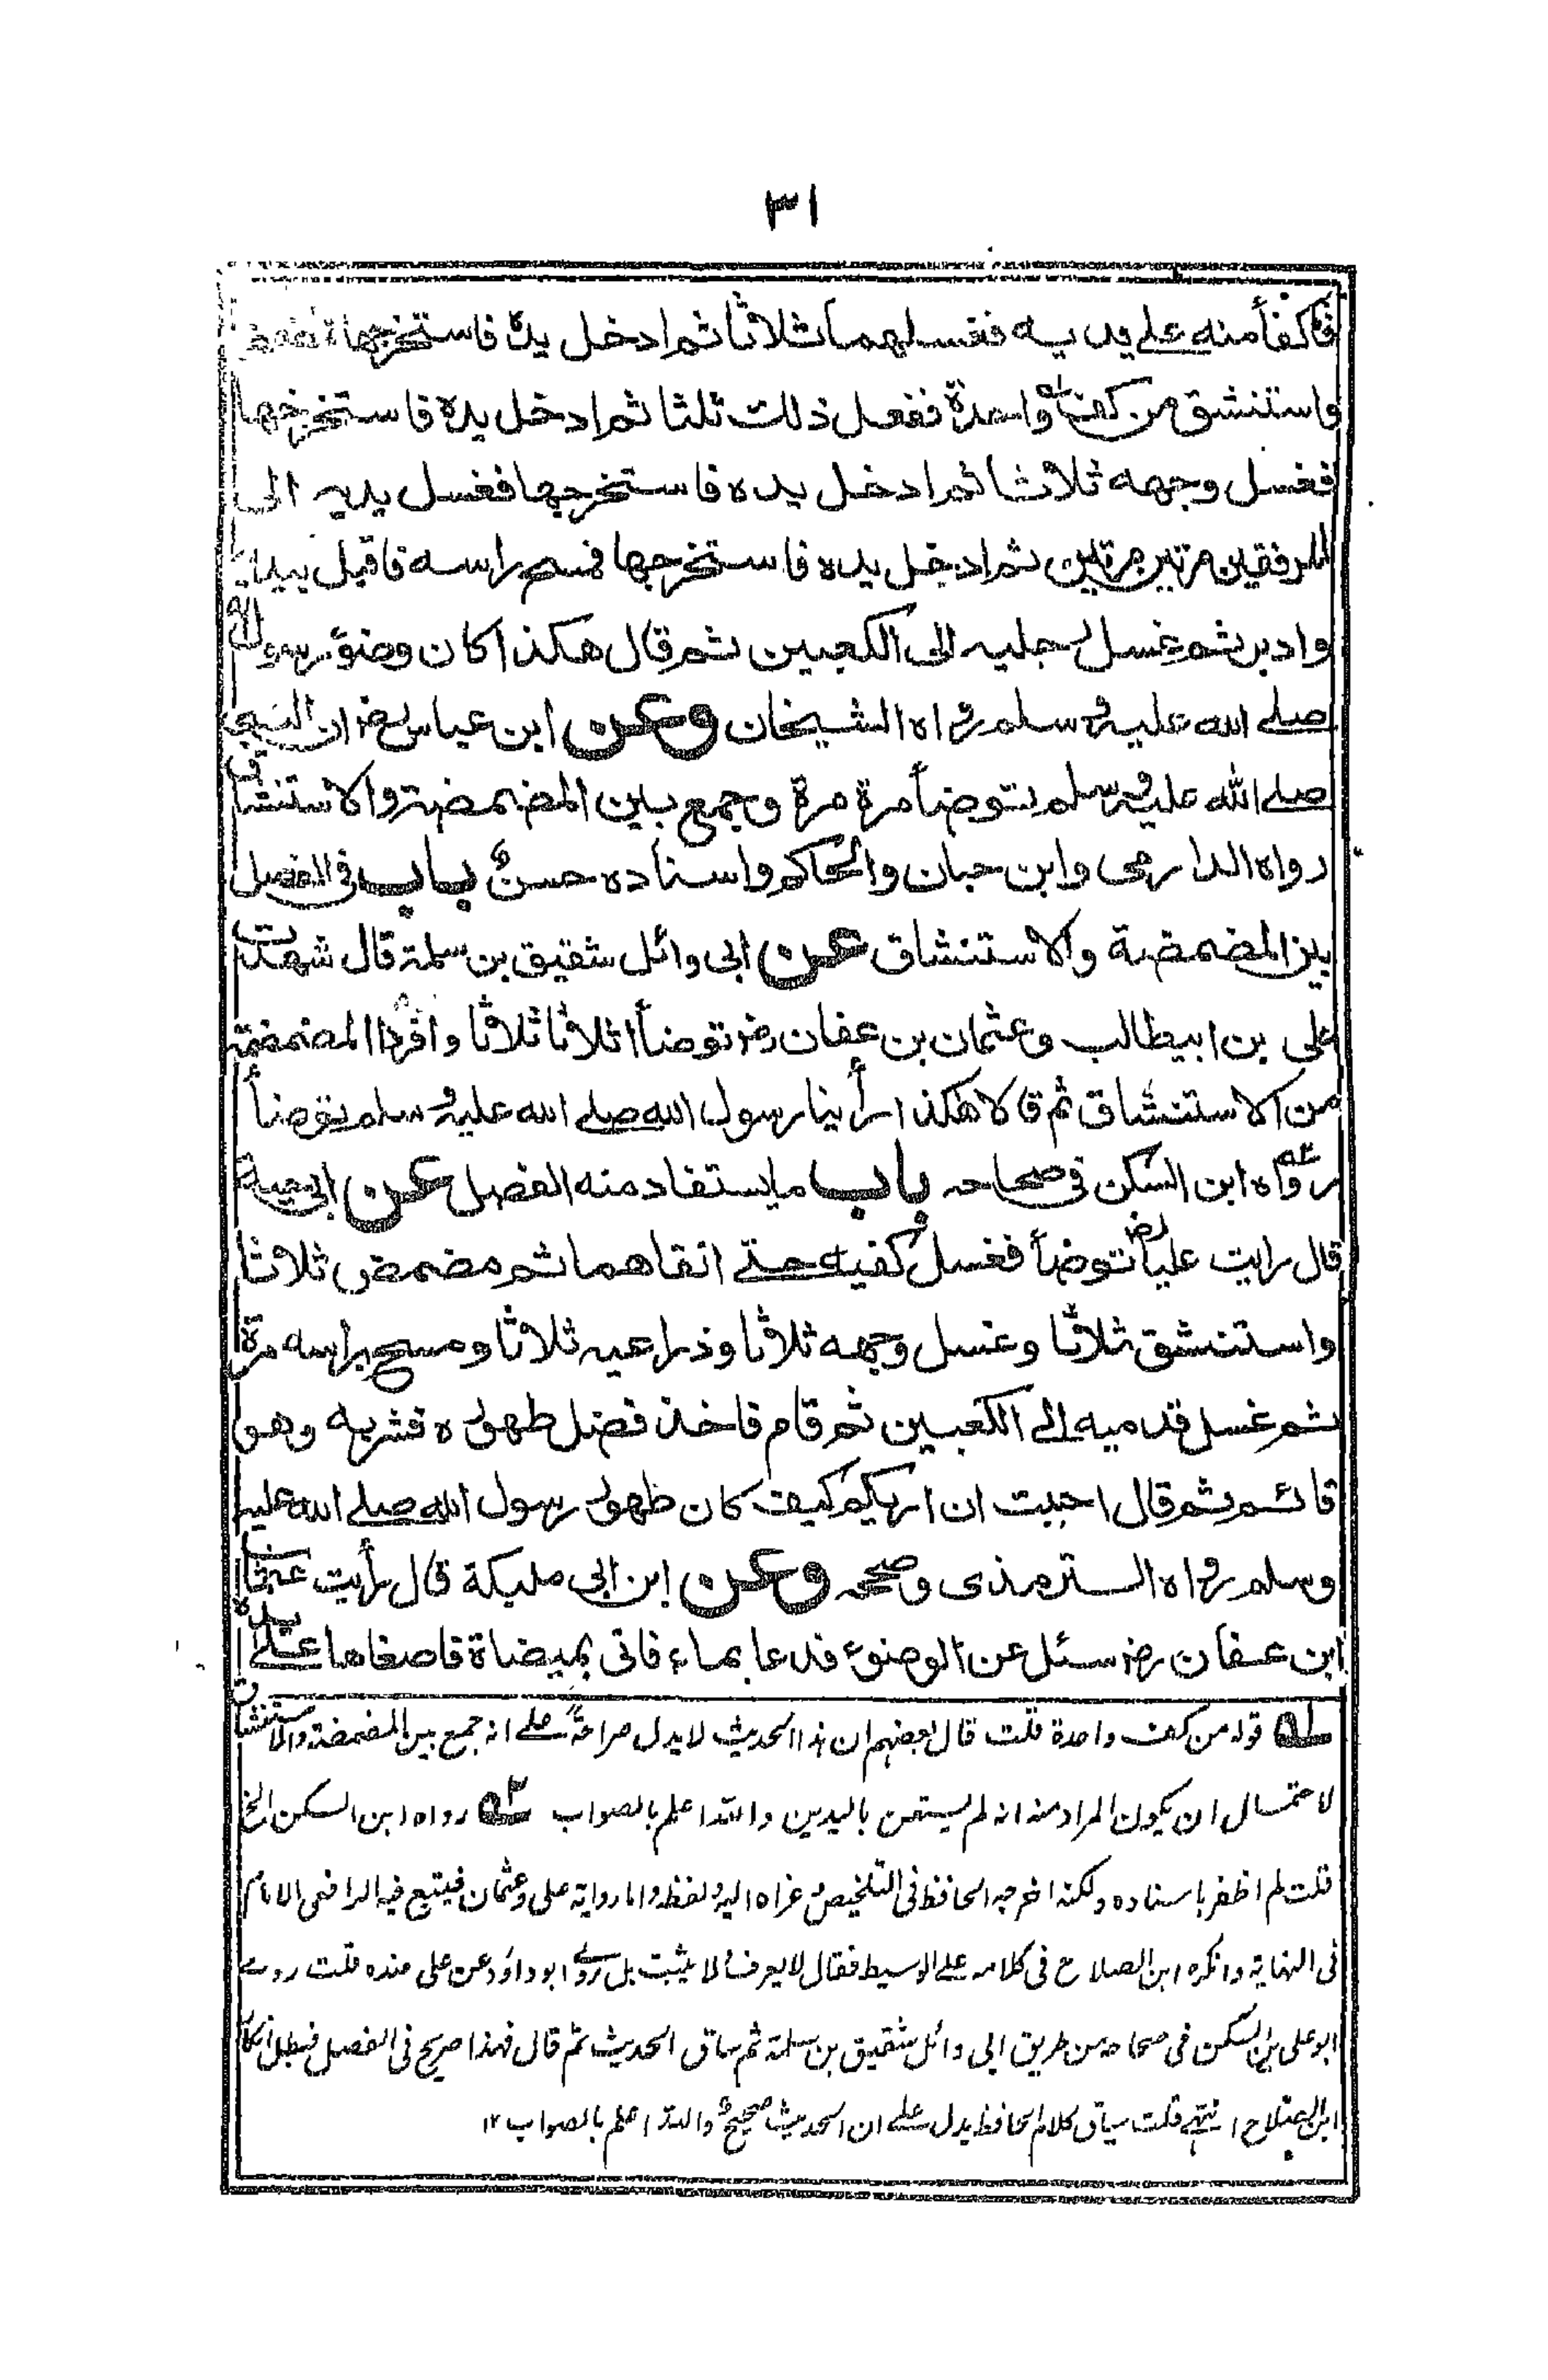 ٣١
فاكفأ منه على يديه فغسلهما ثلاثا ثم ادخل يده فاستخرجها فمضمض
واستنشق من كف واحدة ففعل ذلك ثلثا ثم ادخل يده فاستخرجها
فغسل وجهه ثلاثا ثم ادخل يده فاستخرجها فغسل يديه الى
المرفقين مرتين مرتين ثم ادخل يده فاستخرجها فمسح راسه فاقبل بيديه
وادبر ثم غسل رجليه الى الكعبين ثم قال هكذا كان وضوء رسول الله
صلے الله عليه وسلم رواه الشيخان وعن ابن عباس رضـ ان النبي
صلے الله عليه وسلم توضأ مرة مرة وجمع بين المضمضة والاستنشاق
رواه الدارمى وابن حبان والحاكم واسناده حسنٌ باب فى الفصل
بين المضمضة والاستنشاق عن ابى وائل شقيق بن سلمة قال شهدت
على بن ابيطالب وعثمان بن عفان رضـ توضأا ثلاثا ثلاثا وافردا المضمضة
من الاستنشاق ثم قالا هكذا رأينا رسول الله صلے الله عليه وسلم توضأ
رواه ابن السكن فى صحاحه باب ما يستفاد منه الفصل عن ابى حية
قال رايت عليا رضـ توضأ فغسل كفيه حتے انقاهما ثم مضمض ثلاثا
واستنشق ثلاثا وغسل وجهه ثلاثا وذراعيه ثلاثا ومسح براسه مرة
ثم غسل قدميه الے الكعبين ثم قام فاخذ فضل طهوره فشربه وهو
قائم ثم قال احببت ان اريكم كيف كان طهور رسول الله صلے الله عليه
وسلم رواه الترمذى وصححه وعن ابن ابى مليكة قال رأيت عثمان
ابن عفان رضـ سئل عن الوضوء فدعا بماء فاتى بميضاة فاصغاها علے يده
١ـه قوله من كف واحدة قلت قال بعضهم ان هذا الحديث لا يدل صراحةً علے انه جمع بين المضمضة والاستنشاق
لاحتمال ان يكون المراد منه انه لم يستعن باليدين والله اعلم بالصواب ٢ـه رواه ابن السكن الخ
قلت لم اظفر باسناده ولكنه اخرجه الحافظ فى التلخيص وعزاه اليه ولفظه واما رواية على وعثمان فيتبع فيه الرافعى الامام
فى النهاية وانكره ابن الصلاح فى كلامه علے الوسيط فقال لا يعرف ولا يثبت بل روے ابو داؤد عن على ضده قلت روے
ابو على بن السكن فى صحاحه من طريق ابى وائل شقيق بن سلمة ثم ساق الحديث ثم قال فهذا صريح فى الفصل فبطل انكار
ابن الصلاح انتهے قلت سياق كلام الحافظ يدل علے ان الحديث صحيحٌ والله اعلم بالصواب ١٢